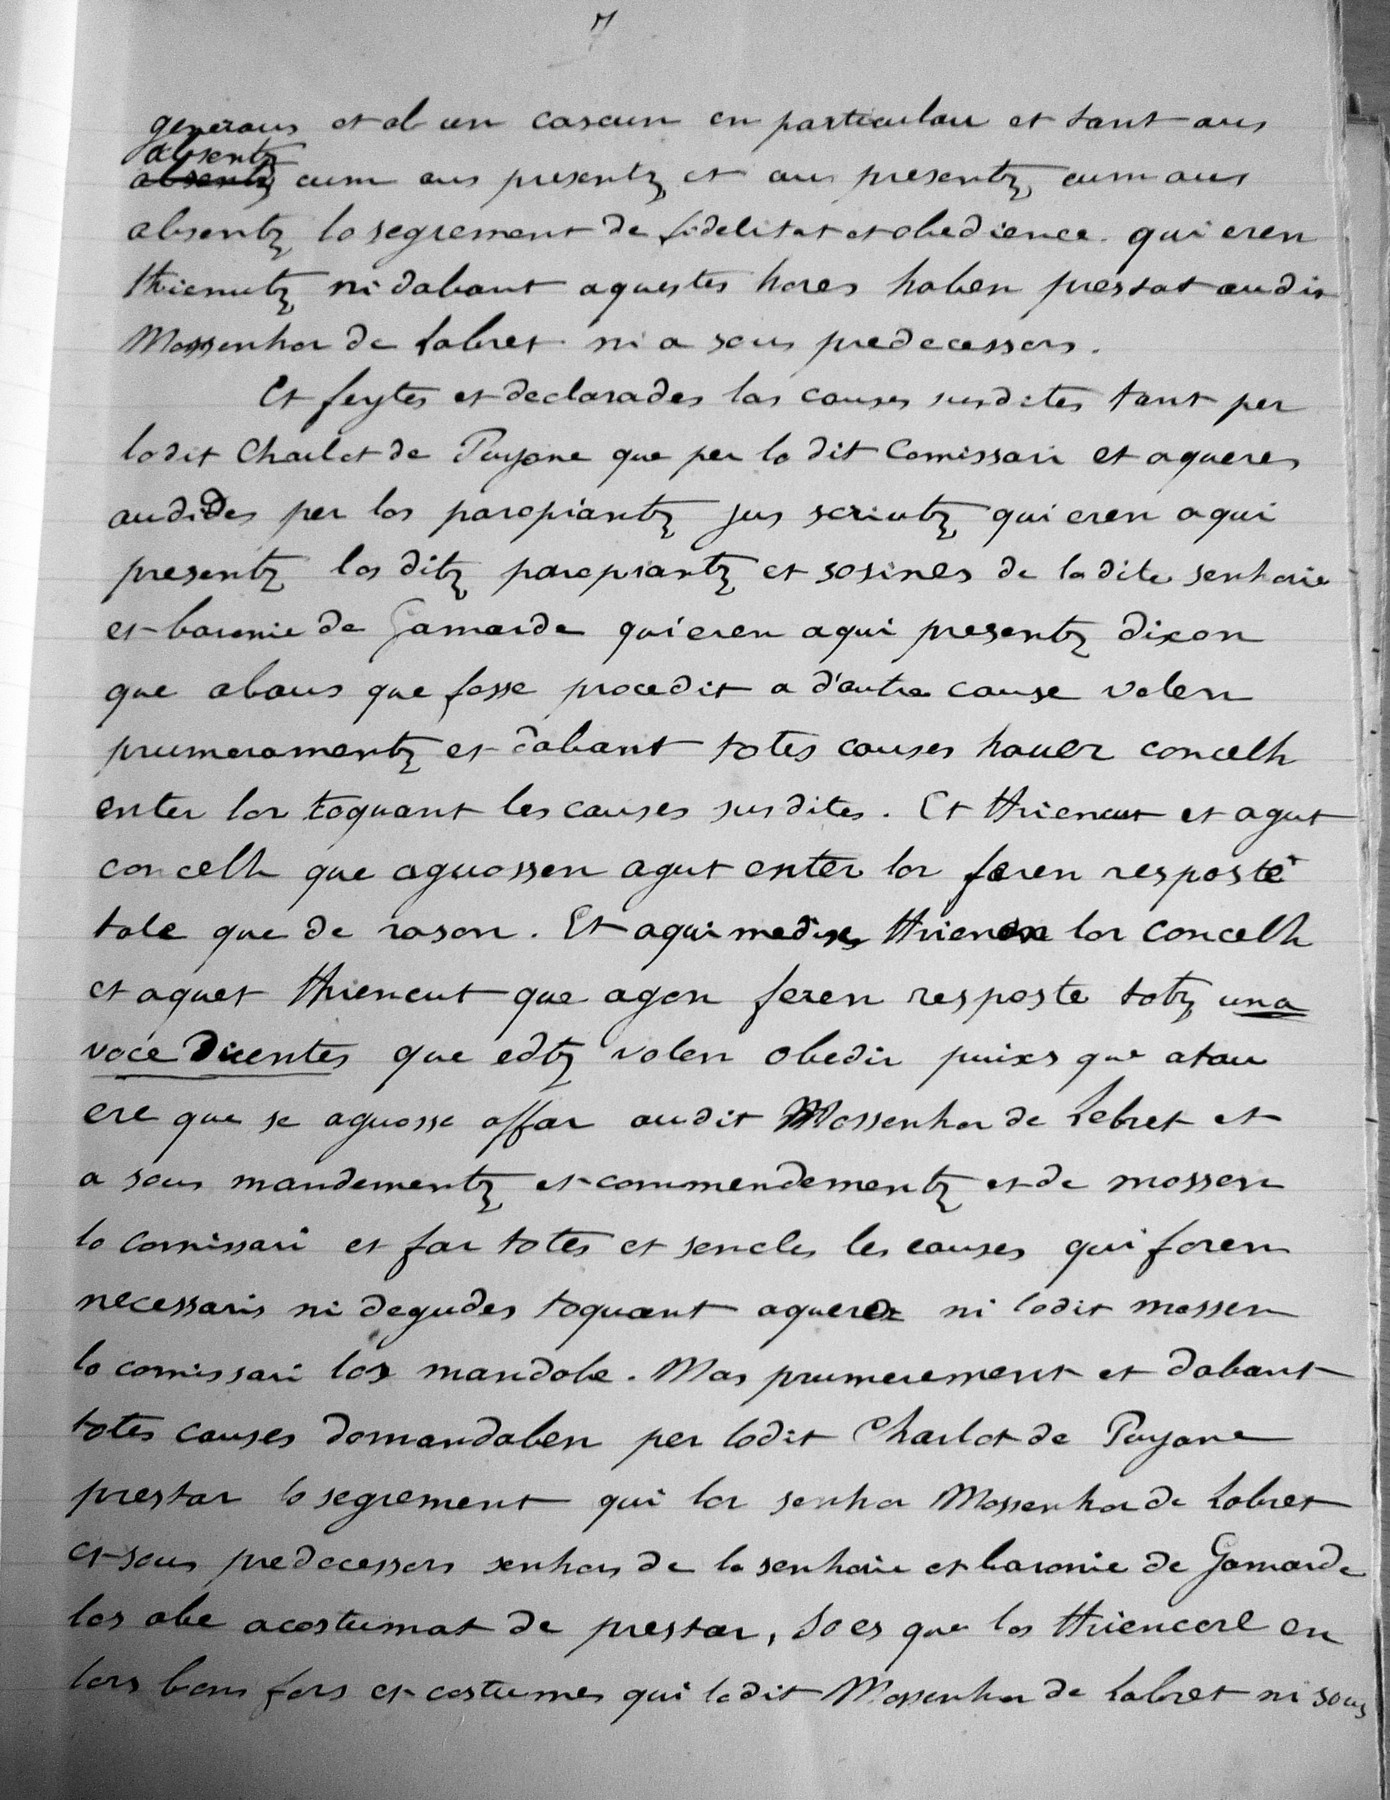 7
generaus et ab un cascun en particular et tant aus
absentz
absentz cum aus presentz et aus presentz cum aus
absentz lo segrement de fidelitat et obedience qui eren
thienutz ni dabant aquestes hores haben prestat audit
Mossenhor de Labret ni a sous predecessors.
Et feytes et declarades las causes susdites tant per
lodit Charlot de Puyane que per lo dit Comissari et aqueres
audides per los paropiantz jus scriutz qui eren aqui
presentz los ditz paropiantz et sosines de la dite senhorie
et baronie de Gamarde qui eren aqui presentz dixon
que abans que fosse procedit a d'autre cause volen
prumeramentz et dabant totes causes hauer concelh
enter lor toquant les causes susdites. Et thiencut et agut
concelh que aguossen agut enter lor feren resposte
tale que de rason. Et aqui medixs thienon lor concelh
et aquet thiencut que agon feren resposte totz una
voce dicentes que edtz volen obedir puixs que atau
ere que se aguosse affar audit Mossenhor de Lebret et
a sous mandementz et commendementz et de mossen
lo comissari et far totes et sencles les causes qui foren
necessaris ni degudes toquant aqueres ni lodit mossen
lo comissari los mandabe. Mas prumerement et dabant
totes causes domandaben per lodit Charlot de Puyane
prestar lo segrement qui lor senhor Mossenhor de Labret
et sous predecessors senhors de la senhorie et baronie de Gamarde
los abe acostumat de prestar, so es que los thiencore en
lors bons fors et costumes qui lodit Mossenhor de Labret ni sous